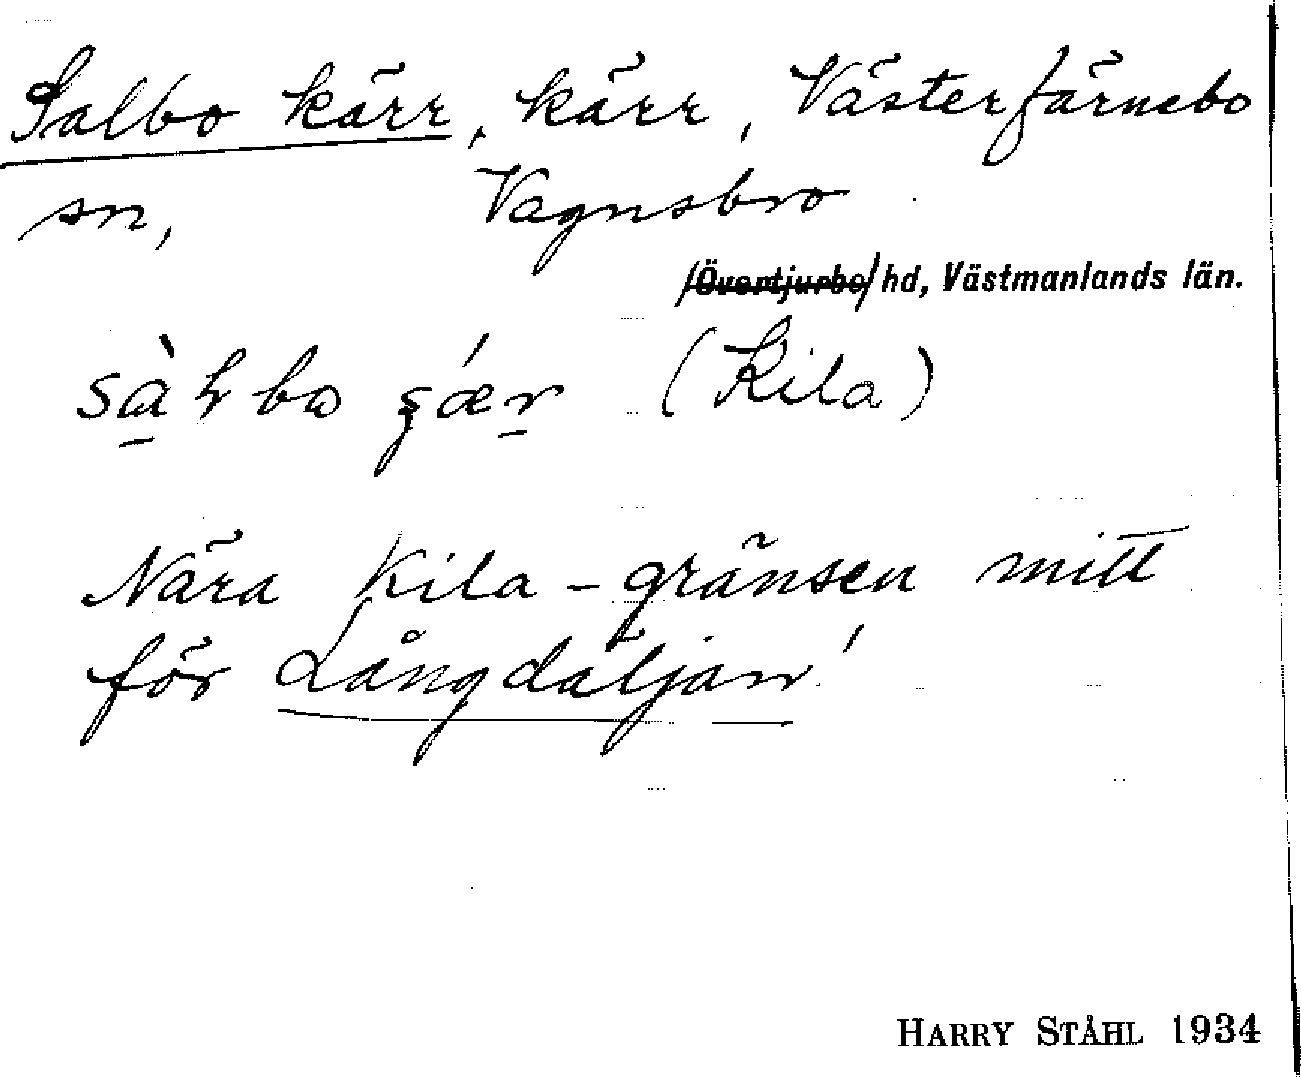 Salbo kärr, kärr, Västerfärnebo
sn, Vagnsbro
/Övertjurbo/ hd, Västmanlands län.
(Kila)
Nära Kila-gränsen mitt
för Långdäljan!
HARRY STÅHL 1934